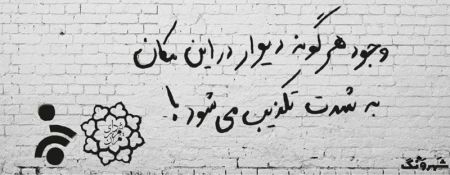 وجود هرگونه دیوار در این مکان
به شدت تکذیب می شود!
شهرونگ